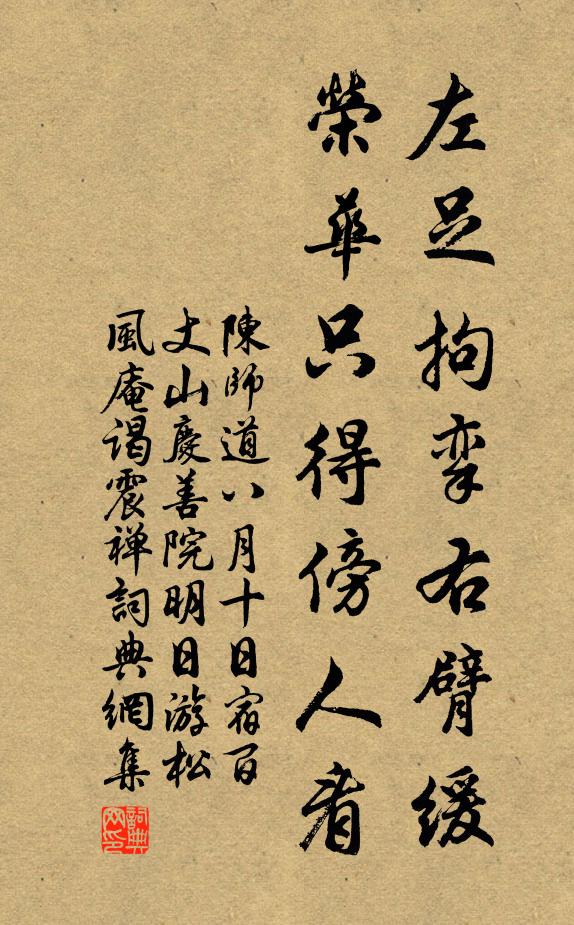 左足拘挛右臂緩
榮華只得傍人看
陳師道八月十日宿百
丈山慶善院明日游松
風庵谒震禅詞典網集
詞典网印